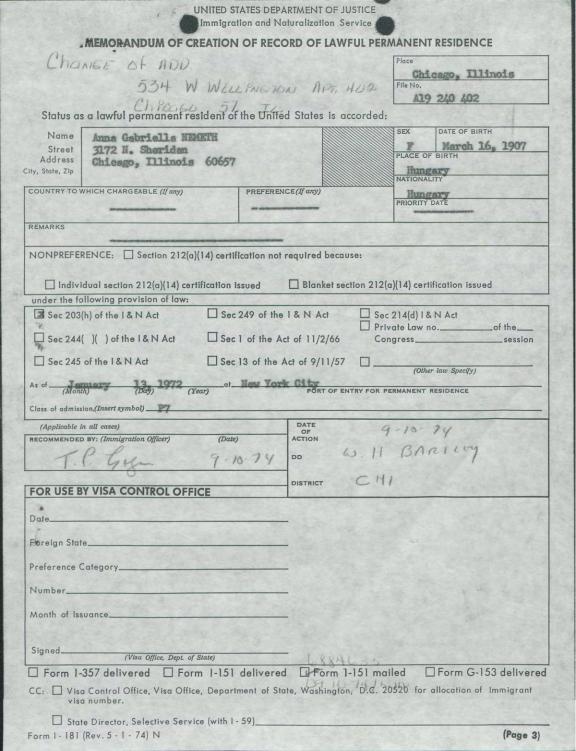 UNITED STATES DEPARTMENT OF JUSTICE
Immigration and Naturalization Service
MEMORANDUM OF CREATION OF RECORD OF LAWFUL PERMANENT RESIDENCE
CHANGE OF ADD
534 W WELLINGTON APT. 402
Chicago 57 IL
Place
Chicago, Illinois
File No.
A19 240 402
Status as a lawful permanent resident of the United States is accorded:
Name Anna Gabriella NEMETH
Street 3172 N. Sheridan
Address Chicago, Illinois 60657
City, State, Zip
SEX
F
DATE OF BIRTH
March 16, 1907
PLACE OF BIRTH
Hungary
NATIONALITY
Hungary
PRIORITY DATE
COUNTRY TO WHICH CHARGEABLE (If any)
PREFERENCE (If any)
REMARKS
NONPREFERENCE: Section 212(a)(14) certification not required because:
Individual section 212(a)(14) certification issued Blanket section 212(a)(14) certification issued
under the following provision of law:
Sec 203(h) of the I & N Act Sec 249 of the I & N Act Sec 214(d) I & N Act
Private Law no. of the
Sec 244( )( ) of the I & N Act Sec 1 of the Act of 11/2/66 Congress session
Sec 245 of the I & N Act Sec 13 of the Act of 9/11/57
(Other law Specify)
As of January 13, 1972 at New York City
(Month) (Day) (Year) PORT OF ENTRY FOR PERMANENT RESIDENCE
Class of admission, (Insert symbol) P7
(Applicable in all cases)
RECOMMENDED BY: (Immigration Officer) (Date)
T.P. 9-10-74
DATE OF ACTION 9-10-74
DD W. H
DISTRICT CHI
FOR USE BY VISA CONTROL OFFICE
Date
Foreign State
Preference Category
Number
Month of Issuance
Signed
(Visa Office, Dept. of State)
Form I-357 delivered Form I-151 delivered Form I-151 mailed Form G-153 delivered
CC: Visa Control Office, Visa Office, Department of State, Washington, D.C. 20520 for allocation of Immigrant
visa number.
State Director, Selective Service (with I-59)
Form I-181 (Rev. 5-1-74) N
(Page 3)